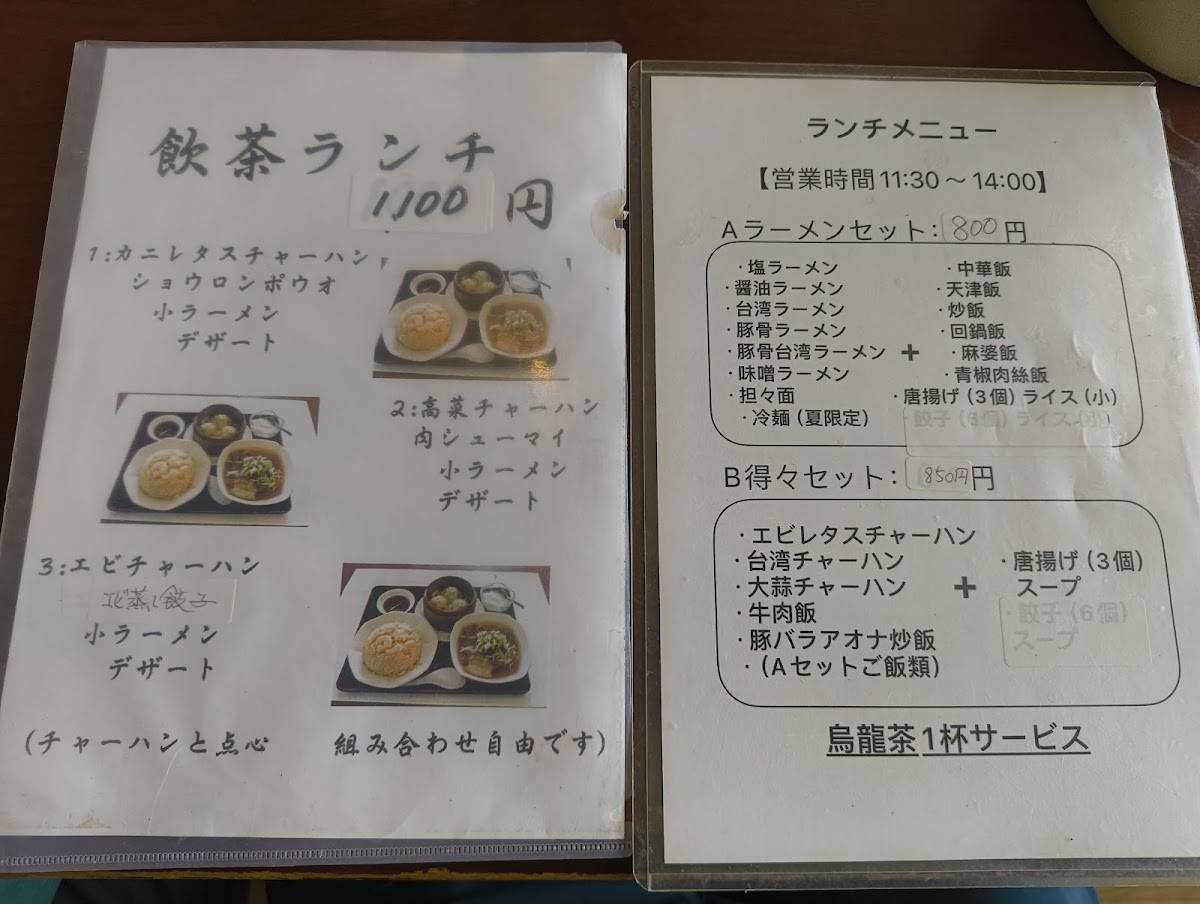 飲茶ランチ
1,100 円
1:カニレタスチャーハン
ショウロンポウオ
小ラーメン
デザート
2:高菜チャーハン
肉シューマイ
小ラーメン
デザート
3:エビチャーハン
エビ蒸し餃子
小ラーメン
デザート
(チャーハンと点心 組み合わせ自由です)
ランチメニュー
【営業時間 11:30～14:00】
Aラーメンセット: 800 円
・塩ラーメン ・中華飯
・醤油ラーメン ・天津飯
・台湾ラーメン ・炒飯
・豚骨ラーメン ・回鍋飯
・豚骨台湾ラーメン + ・麻婆飯
・味噌ラーメン ・青椒肉絲飯
・担々面 ・唐揚げ (3個) ライス (小)
・冷麺 (夏限定) 餃子 (6個) ライス (小)
B得々セット: 850円 円
・エビレタスチャーハン
・台湾チャーハン ・唐揚げ (3個)
・大蒜チャーハン + スープ
・牛肉飯 ・餃子 (6個)
・豚バラアオナ炒飯 スープ
・(Aセットご飯類)
烏龍茶1杯サービス